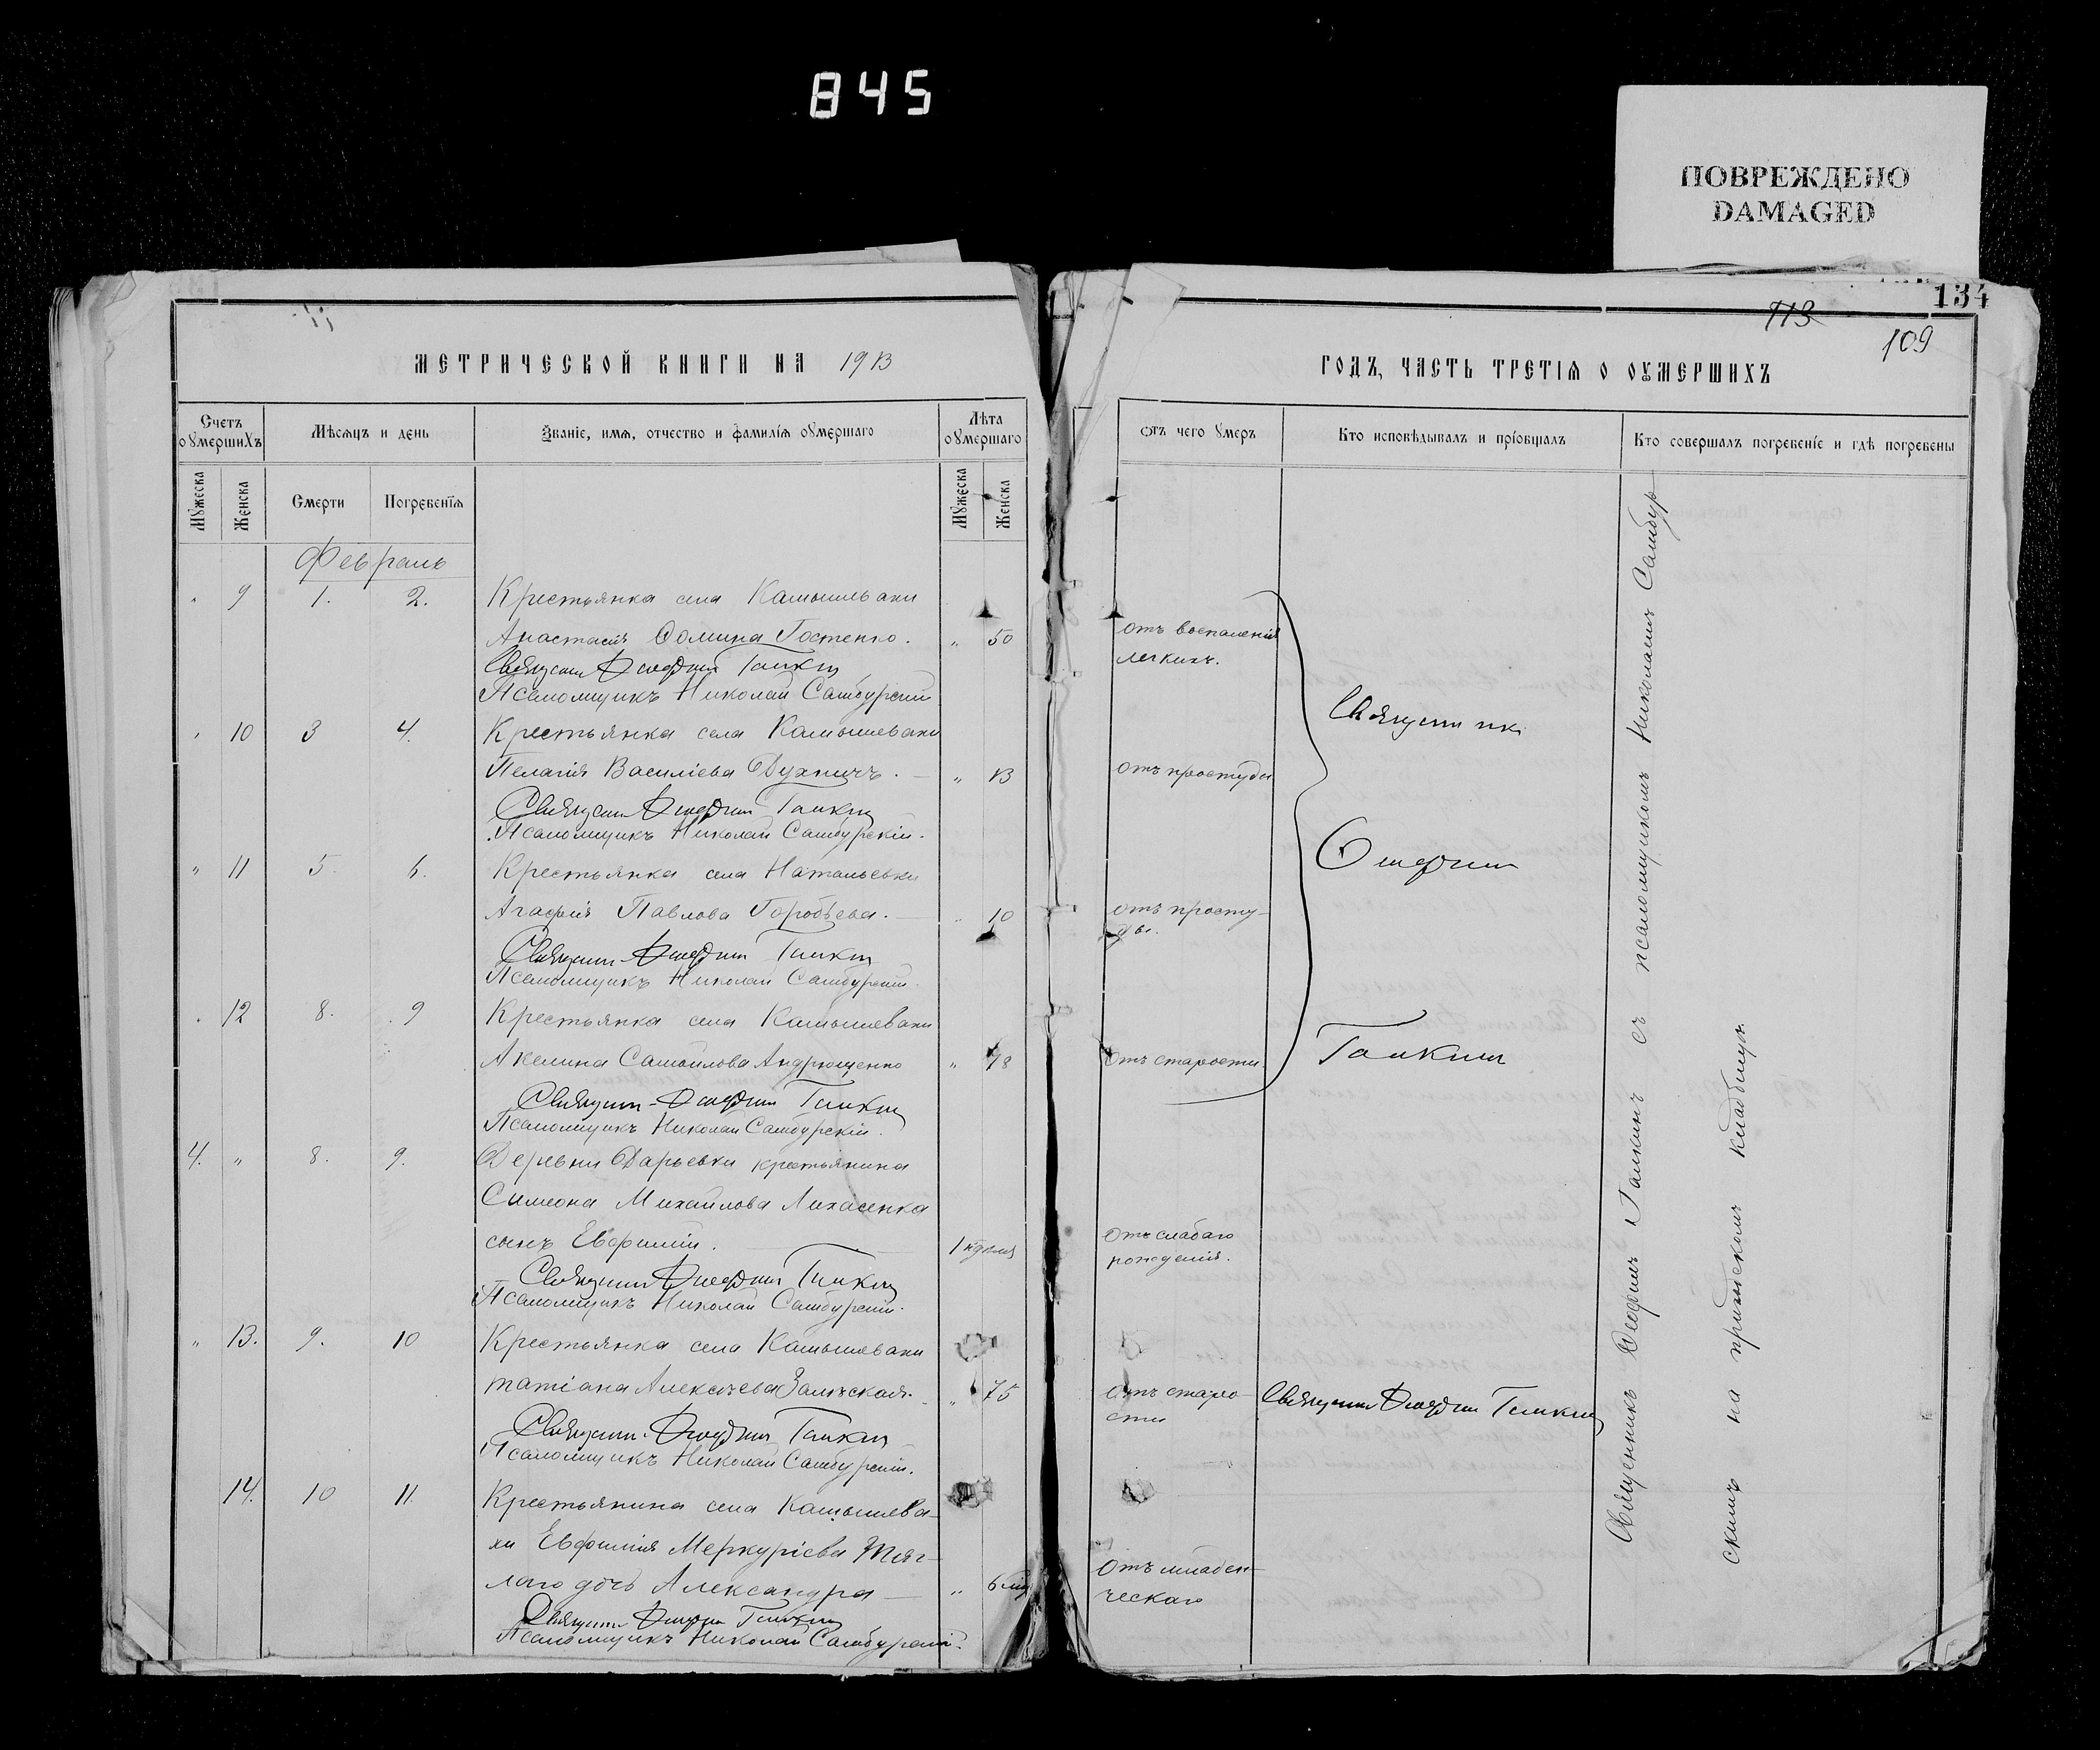 845
ПОВРЕЖДЕНО
DAMAGED
134
113
109
МЕТРИЧЕСКОЙ КНИГИ НА 1913
ГОДЪ, ЧАСТЬ ТРЕТІЯ О ОУМЕРШИХЪ
Счетъ оумершихъ
Мѣсяцъ и день
Званіе, имя, отчество и фамилія оумершаго
Лѣта оумершаго
Отъ чего умеръ
Кто исповѣдывалъ и пріобщалъ
Кто совершалъ погребеніе и гдѣ погребены
Мужеска
Женска
Смерти
Погребенія
Мужеска
Женска
Февраль
" 9 1. 2. Крестьянка села Камышевахи
Анастасія Фомина Гостенко. " 50 отъ воспаленія
легкихъ.
Священникъ Ѳеофилъ Галкинъ
Псаломщикъ Николай Самбурскій
" 10 3 4. Крестьянка села Камышевахи
Пелагія Василіева " 13 отъ простуды
Священникъ Ѳеофилъ Галкинъ
Псаломщикъ Николай Самбурскій.
" 11 5. 6. Крестьянка села Натальевки
Агафія Павлова Горобьева. " 10 отъ просту-
ды.
Священникъ Ѳеофилъ Галкинъ
Псаломщикъ Николай Самбурскій.
" 12 8. 9 Крестьянка села Камышевахи
Акелина Самойлова Андрющенко " 78 отъ старости.
Священникъ Ѳеофилъ Галкинъ
Псаломщикъ Николай Самбурскій.
Священникъ
Ѳеофилъ
Галкинъ
4. " 8. 9. Деревни Дарьевки крестьянина
Симеона Михайлова Лихасенка
сынъ Евфимій. 1 недѣля отъ слабаго
рожденія.
Священникъ Ѳеофилъ Галкинъ
Псаломщикъ Николай Самбурскій.
" 13. 9. 10 Крестьянка села Камышевахи
Татіана Алексѣева " 75 отъ старо-
сти Священникъ Ѳеофилъ Галкинъ
Священникъ Ѳеофилъ Галкинъ
Псаломщикъ Николай Самбурскій.
14. 10 11. Крестьянина села Камышева-
хи Евфимія Меркуріева Тяг-
лаго дочь Александра " 6 отъ младен-
ческаго
Священникъ Ѳеофилъ Галкинъ
Псаломщикъ Николай Самбурскій.
Священникъ Ѳеофилъ Галкинъ съ псаломщикомъ Николаемъ Самбур
скимъ на приходскомъ кладбищѣ